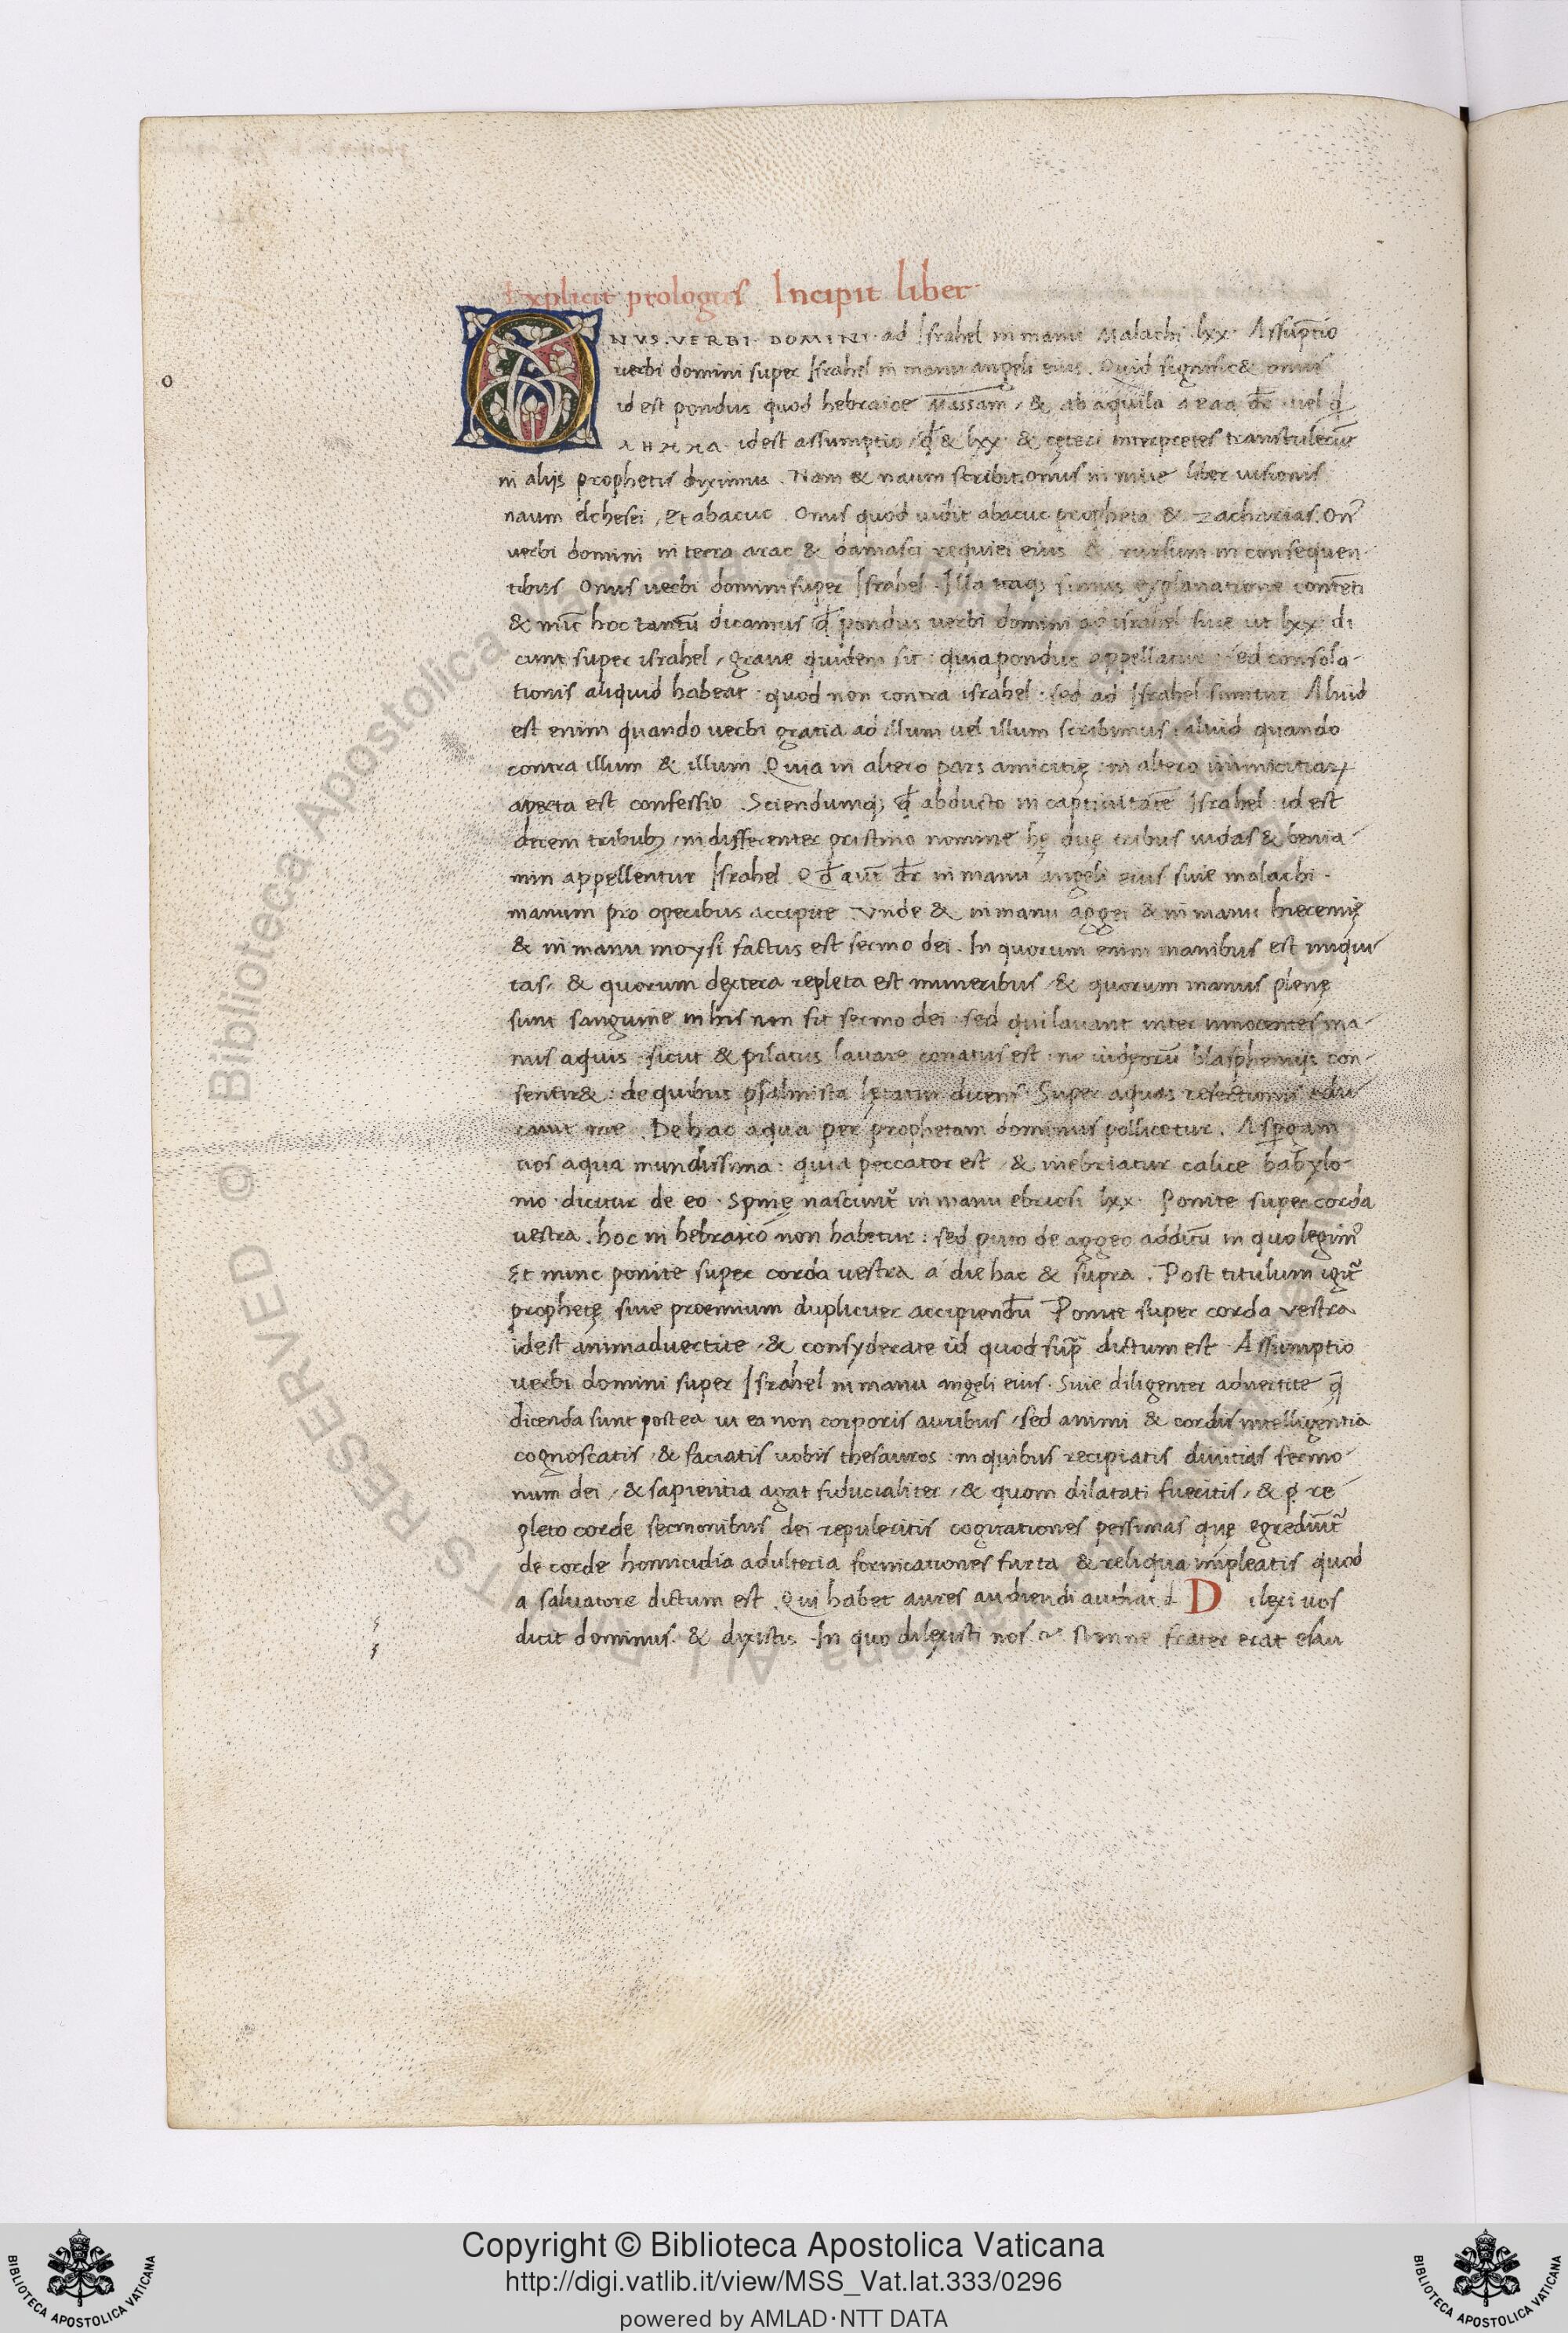 Explicit prologus Incipit liber
ONVS. VERBI. DOMINI. ad Israhel in manu Malachi. lxx. Assūptio
verbi domini super Israhel in manu angeli eius. Quid signific& onus
id est pondus quod hebraice Massam, & ab aquila
id est assumptio, qđ & lxx. & cęteri interpretes transtulerūt
in alijs prophetis diximus. Nam & naum scribit. onus ninive liber visionis
naum elchesei, Et abacuc. Onus quod vidit abacuc propheta & zacharias. On᾿
verbi domini in terra arac & damasci requiei eius & rursum in consequen-
tibus Onus verbi domini super Israhel. Illa itaq; simus explanatione contēti
& nūc hoc tantū dicamus qđ pondus verbi domini ad israhel sive ut lxx. di
cunt super israhel, grave quidem sit: quia pondus appellatur: sed consola-
tionis aliquid habeat: quod non contra israhel. sed ad Israhel sumitur Aliud
est enim quando verbi gratia ad illum vel illum scribimus: aliud quando
contra illum & illum Quia in altero pars amicitię: in altero inimicitiaꝝ
aperta est confessio. Sciendumq; qđ abducto in captivitatē Israhel: id est
decem tribub;, indifferenter pristino nomine hę duę tribus iudas & benia-
min appellentur Israhel. Qđ aut̄ dr̄ in manu angeli eius sive malachi.
manum pro operibus accipite. Unde & in manu aggei & in manu hieremię
& in manu moysi factus est sermo dei. In quorum enim manibus est iniqui-
tas, & quorum dextera repleta est muneribus, & quorum manus plenę
sunt sanguine in his non fit sermo dei: sed qui lavant inter innocentes ma-
nus aquis: sicut & pilatus lavare conatus est: ne iudęorū blasphemijs con-
sentir&: de quibus psalmista lętatur dicens. Super aquas refectionis edu-
cavit me. De hac aqua per prophetam dominus pollicetur. Aspgam
vos aqua mundissima: quia peccator est, & inebriatur calice babylo-
nio. dicitur de eo. Spinę nascunt᾿ in manu ebriosi lxx. Ponite super corda
vestra. hoc in hebraico non habetur: sed puto de aggeo additū in quo legim᾿
Et nunc ponite super corda vestra a die hac & supra. Post titulum igit᾿
prophetę sive proemium dupliciter accipiendū Ponite super corda vestra
id est animadvertite, & consyderate id quod sup̄ dictum est Assumptio
verbi domini super Israhel in manu angeli eius. Sive diligenter advertite q̄
dicenda sunt postea ut ea non corporis auribus, sed animi & cordis intelligentia
cognoscatis, & faciatis vobis thesauros: in quibus recipiatis divitias sermo-
num dei, & sapientia agat fiducialiter, & quom dilatati fueritis, & p re-
pleto corde sermonibus dei repuleritis cogitationes pessimas quę egrediūt᾿
de corde homicidia adulteria fornicationes furta & reliqua impleatis quod
a salvatore dictum est. Qui habet aures audiendi audiat. d D ilexi vos
dicit dominus. & dixistis. In quo dilexisti nos nonne frater erat esau
o
Copyright © Biblioteca Apostolica Vaticana
http://digi.vatlib.it/view/MSS_Vat.lat.333/0296
powered by AMLAD·NTT DATA
BIBLIOTECA APOSTOLICA VATICANA
BIBLIOTECA APOSTOLICA VATICANA